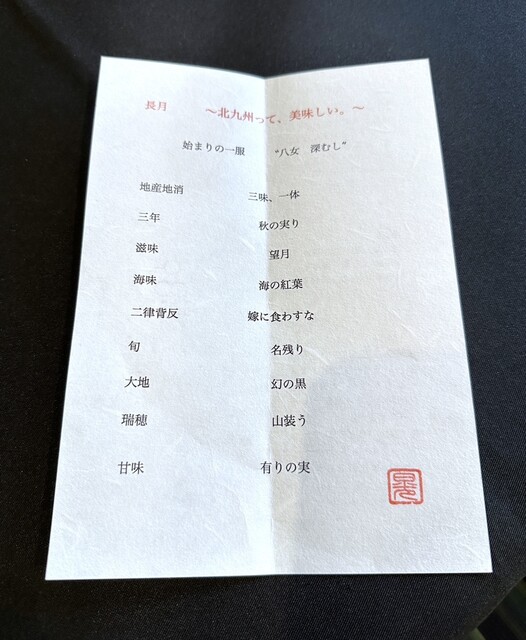 長月 ～北九州って、美味しい。～
始まりの一服 “八女 深むし“
地産地消 三味、一体
三年 秋の実り
滋味 望月
海味 海の紅葉
二律背反 嫁に食わすな
旬 名残り
大地 幻の黒
瑞穂 山装う
甘味 有りの実